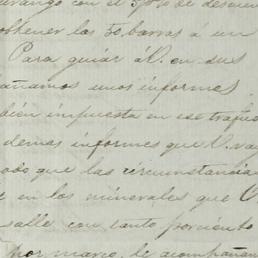 urango con el 5% de descuen
obtener las 50 barras á un
Para guiar áV. en sus
añamos unos informes
bien impuesta en ese trafico
demas informes que V. va
odo que las circunstancia
en los minerales que V
salle con tanto porciento
por marco, de acompañan